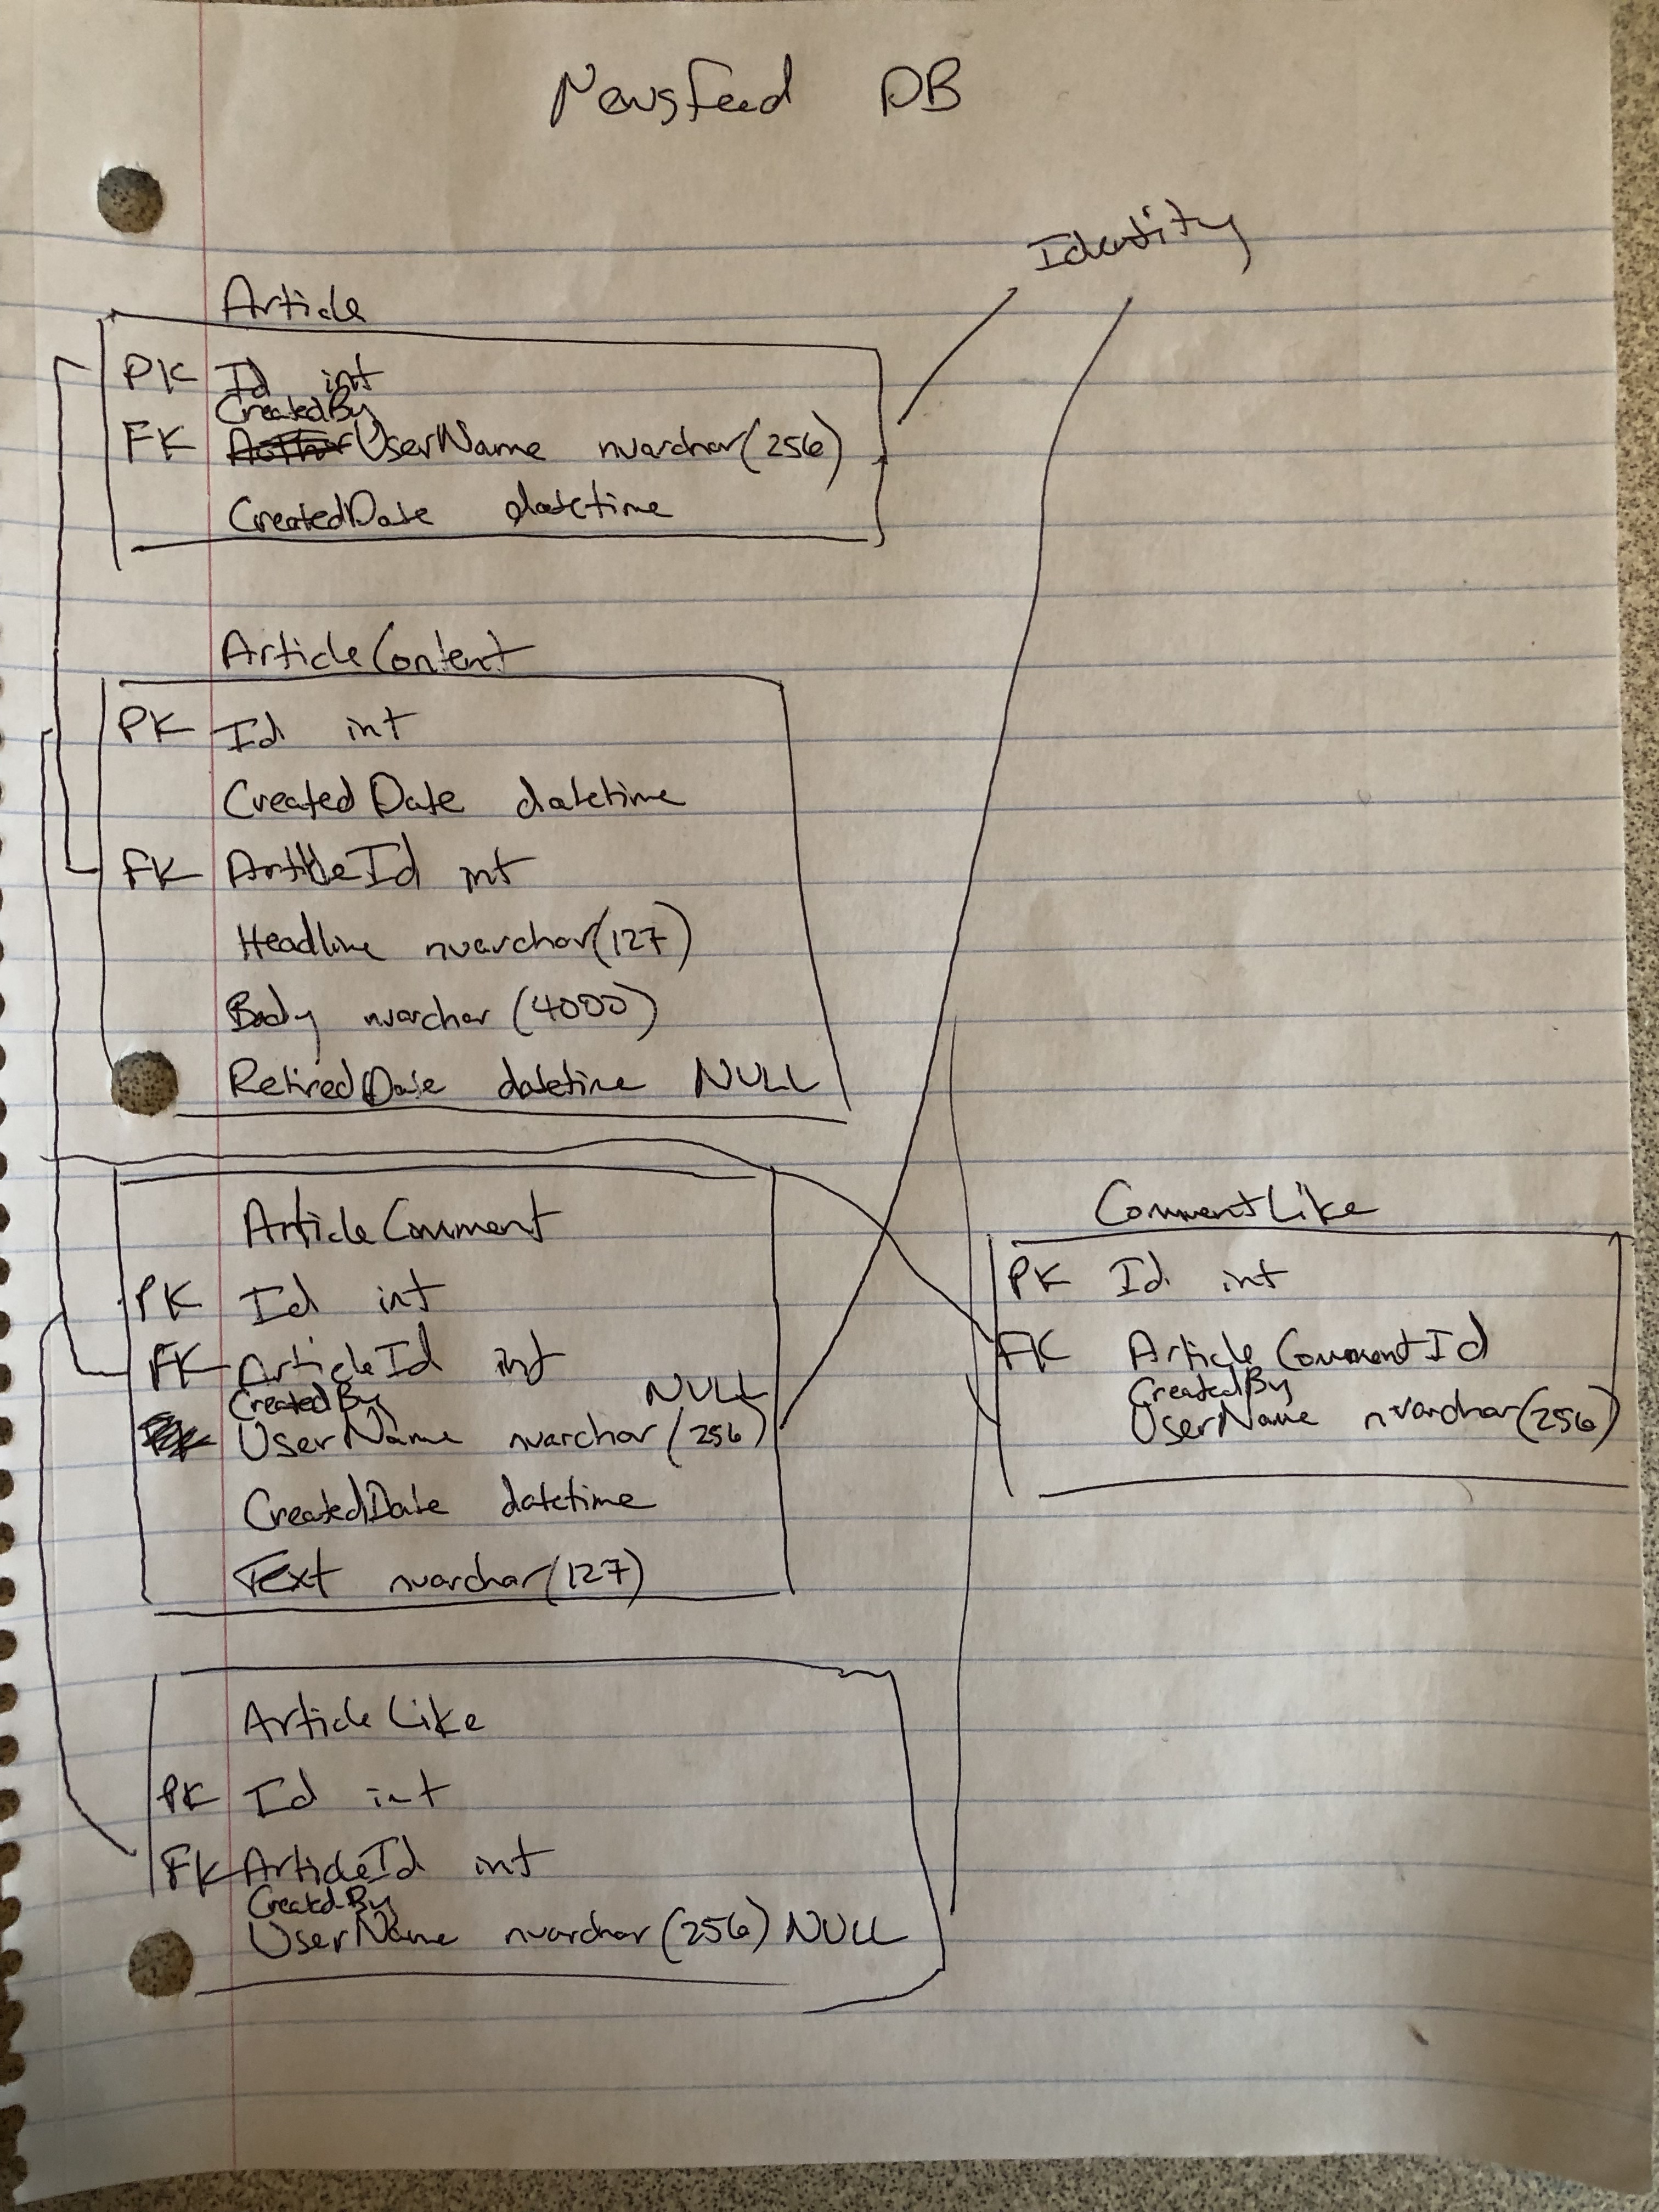 Newsfeed DB
Identity
Article
PK Id int
CreatedBy
FK UserName nvarchar(256)
CreatedDate datetime
ArticleContent
PK Id int
CreatedDate datetime
FK ArticleId int
Headline nvarchar(127)
Body nvarchar(4000)
RetiredDate datetime NULL
ArticleComment
PK Id int
FK ArticleId int
CreatedBy NULL
UserName nvarchar(256)
CreatedDate datetime
Text nvarchar(127)
CommentLike
PK Id int
FK ArticleCommentId
CreatedBy
UserName nvarchar(256)
ArticleLike
PK Id int
FK ArticleId int
CreatedBy
UserName nvarchar(256) NULL